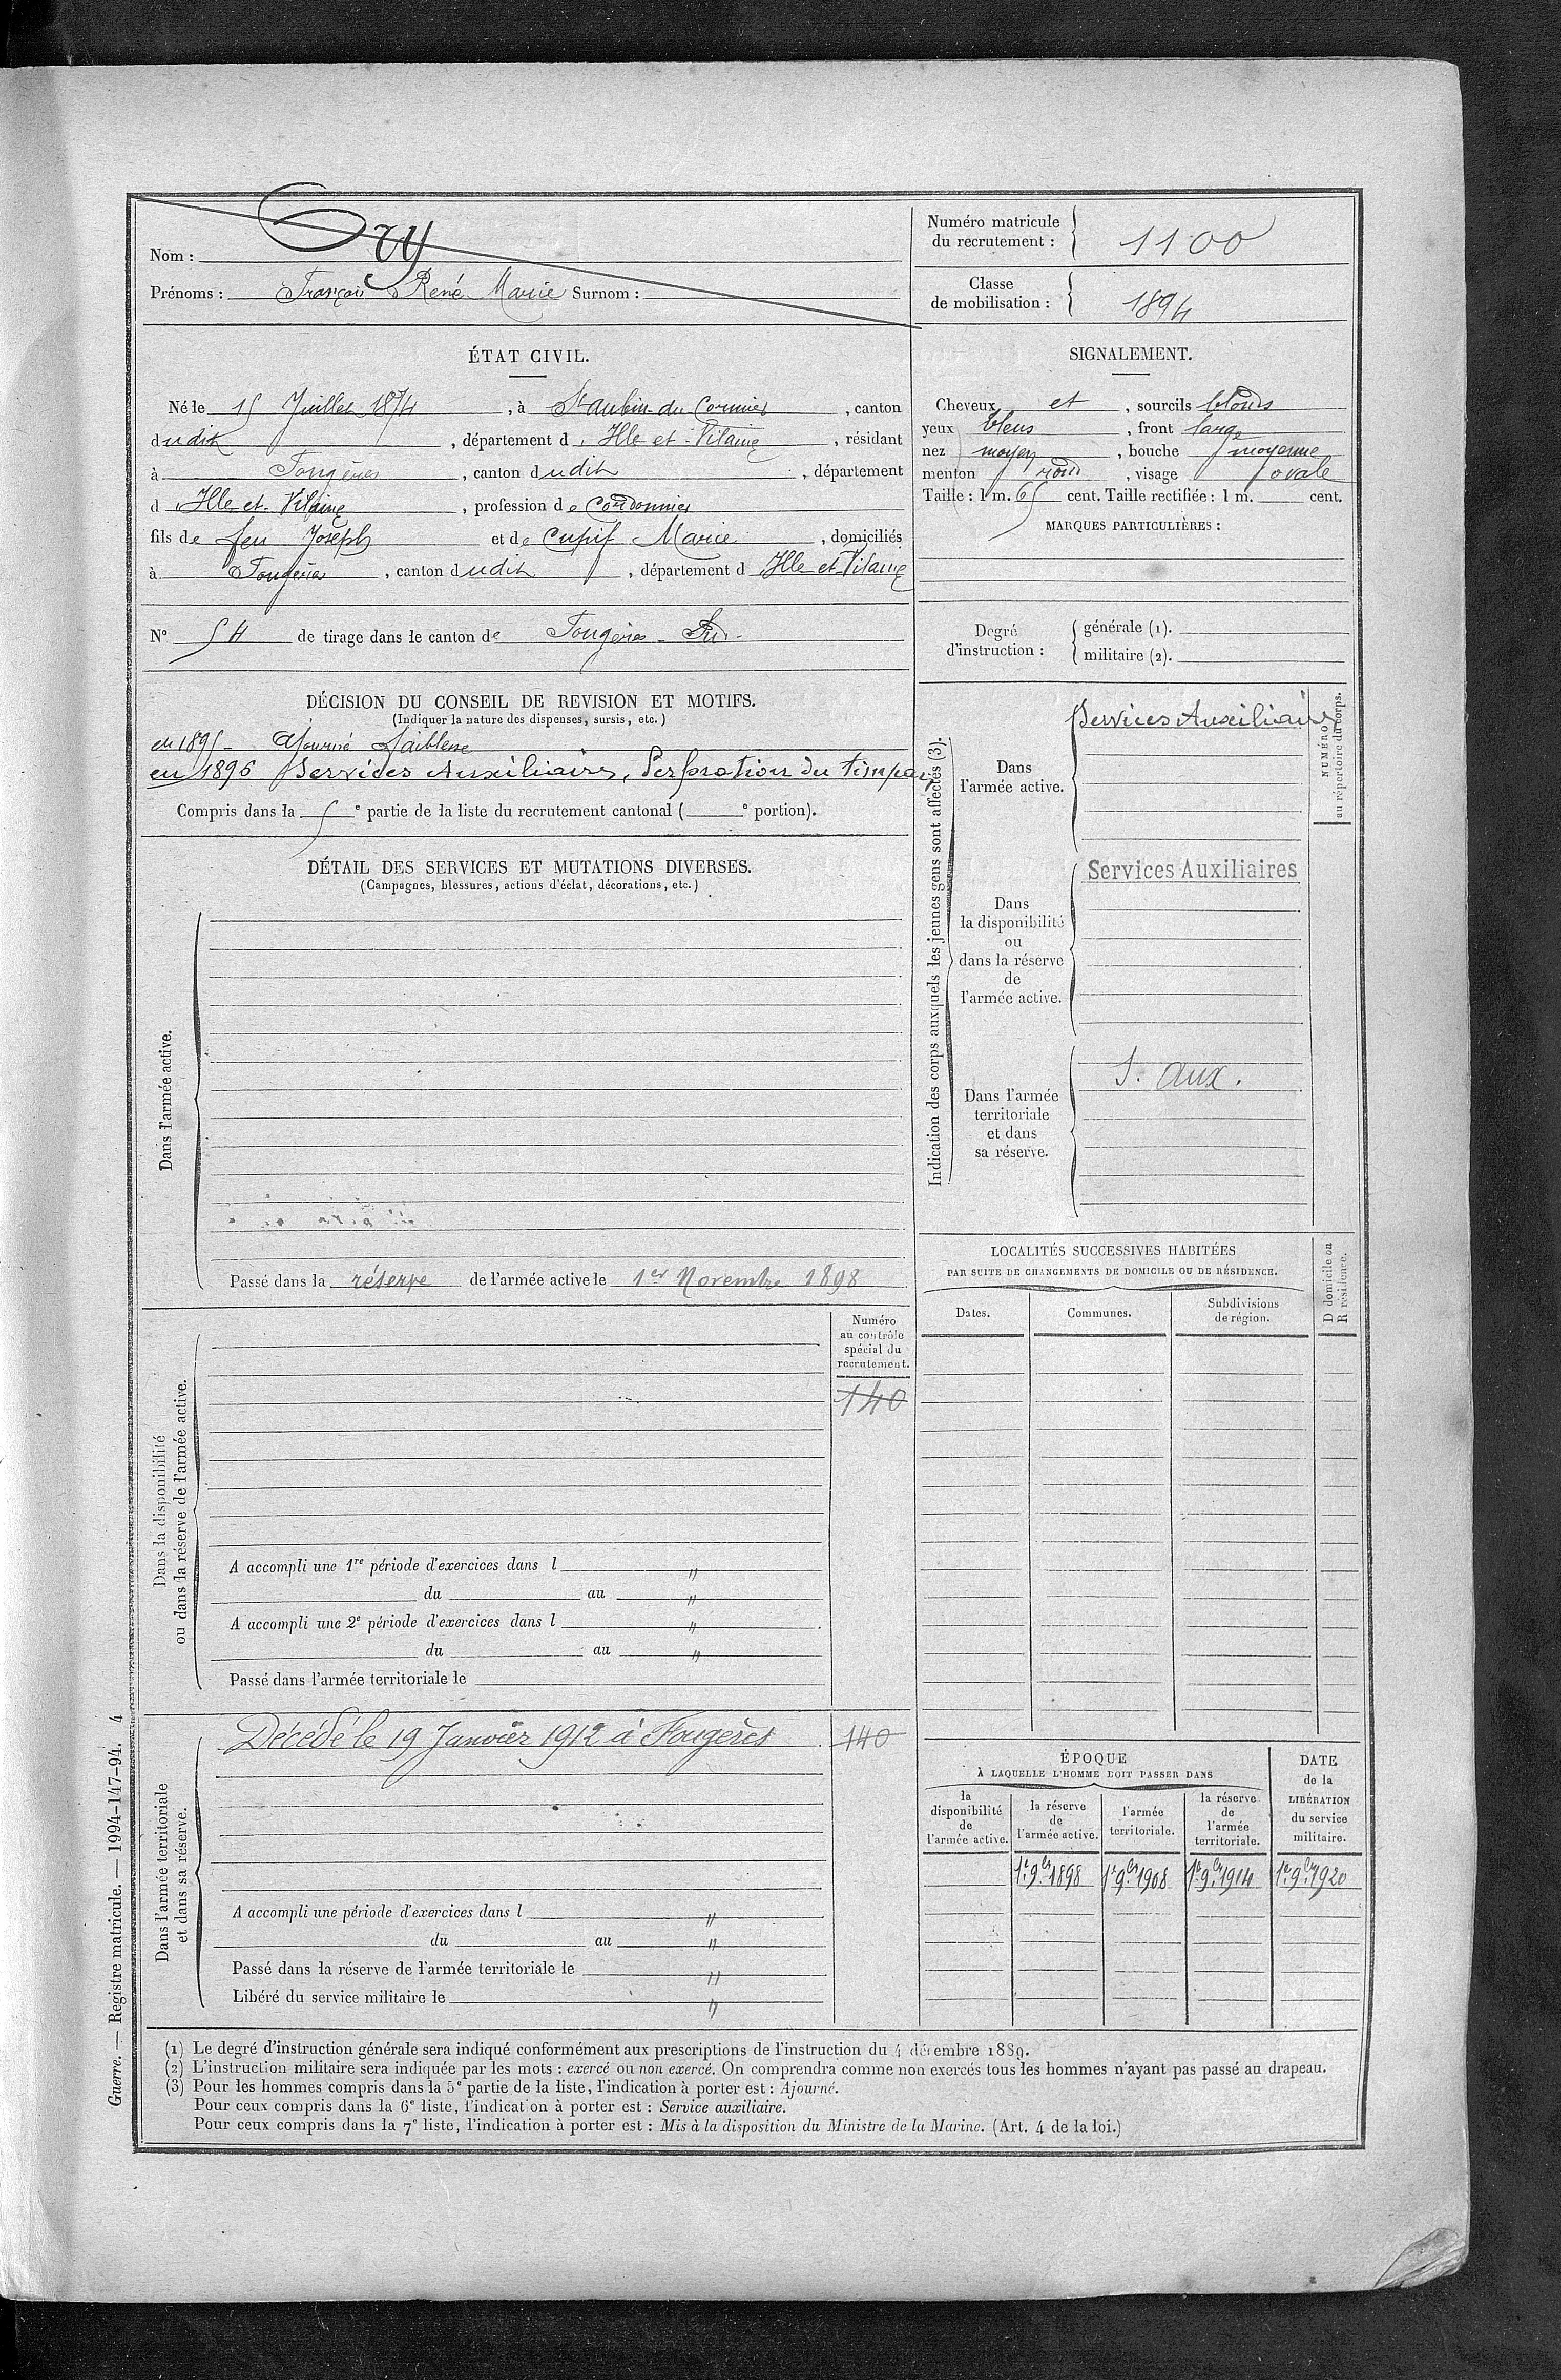 Nom : Ory
Prénoms : François René Marie Surnom :
Numéro matricule du recrutement : 1100
Classe de mobilisation : 1894
ÉTAT CIVIL.
Né le 15 Juillet 1874, à St aubin-du Cormier, canton
dudit, département d'Ille et-Vilaine, résidant
à Fougères, canton dudit, département
d'Ille et-Vilaine, profession de Cordonnier
fils de feu Joseph et de Cupif Marie, domiciliés
à Fougères, canton dudit, département d'Ille et-Vilaine
N° 54 de tirage dans le canton de Fougères-Sud.
SIGNALEMENT.
Cheveux et, sourcils blonds
yeux bleus, front large
nez moyen, bouche moyenne
menton rond, visage ovale
Taille : 1 m. 65 cent. Taille rectifiée : 1 m. cent.
MARQUES PARTICULIÈRES :
Degré d'instruction : générale (1).
militaire (2).
DÉCISION DU CONSEIL DE REVISION ET MOTIFS.
(Indiquer la nature des dispenses, sursis, etc.)
en 1895- Ajourné faiblesse
en 1896 Services Auxiliaires, Perforation du timpan
Compris dans la 5e partie de la liste du recrutement cantonal (e portion).
DÉTAIL DES SERVICES ET MUTATIONS DIVERSES.
(Campagnes, blessures, actions d'éclat, décorations, etc.)
Dans l'armée active.
Passé dans la réserve de l'armée active le 1er Novembre 1898
Indication des corps auxquels les jeunes gens sont affectés (3).
NUMÉRO au répertoire du corps.
Dans l'armée active.
Services Auxiliaires
Dans la disponibilité ou dans la réserve de l'armée active.
Services Auxiliaires
Dans l'armée territoriale et dans sa réserve.
S. aux.
LOCALITÉS SUCCESSIVES HABITÉES
PAR SUITE DE CHANGEMENTS DE DOMICILE OU DE RÉSIDENCE.
Dates.
Communes.
Subdivisions de région.
D domicile ou R résidence.
Dans la disponibilité ou dans la réserve de l'armée active.
Numéro au contrôle spécial du recrutement.
140
A accompli une 1re période d'exercices dans l "
du au "
A accompli une 2e période d'exercices dans l "
du au "
Passé dans l'armée territoriale le
Dans l'armée territoriale et dans sa réserve.
Décédé le 19 Janvier 1912 à Fougères
140
A accompli une période d'exercices dans l "
du au "
Passé dans la réserve de l'armée territoriale le "
Libéré du service militaire le "
ÉPOQUE
À LAQUELLE L'HOMME DOIT PASSER DANS
la disponibilité de l'armée active.
la réserve de l'armée active.
l'armée territoriale.
la réserve de l'armée territoriale.
DATE de la LIBÉRATION du service militaire.
1r 9bre 1898
1r 9bre 1908
1r 9bre 1914
1r 9bre 1920
(1) Le degré d'instruction générale sera indiqué conformément aux prescriptions de l'instruction du 4 décembre 1889.
(2) L'instruction militaire sera indiquée par les mots : exercé ou non exercé. On comprendra comme non exercés tous les hommes n'ayant pas passé au drapeau.
(3) Pour les hommes compris dans la 5e partie de la liste, l'indication à porter est : Ajourné.
Pour ceux compris dans la 6e liste, l'indication à porter est : Service auxiliaire.
Pour ceux compris dans la 7e liste, l'indication à porter est : Mis à la disposition du Ministre de la Marine. (Art. 4 de la loi.)
Guerre. — Registre matricule. — 1994-147-94. 4